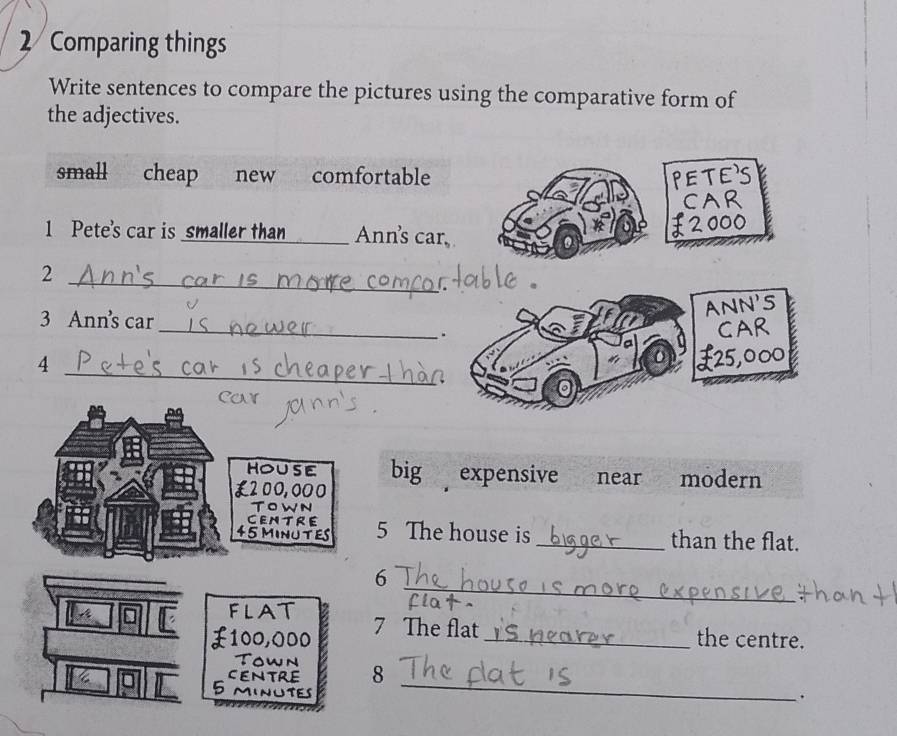 2 Comparing things
Write sentences to compare the pictures using the comparative form of
the adjectives.
small cheap new comfortable
PETE'S
CAR
£2000
1 Pete's car is smaller than Ann's car.
2 Ann's car is more comfortable.
3 Ann's car is newer.
ANN'S
CAR
£25,000
4 Pete's car is cheaper than
car Jann's.
HOUSE
£200,000
TOWN
CENTRE
45 MINUTES
big expensive near modern
5 The house is bigger than the flat.
6 The house is more expensive than
flat.
FLAT
£100,000
TOWN
CENTRE
5 MINUTES
7 The flat is nearer the centre.
8 The flat is.